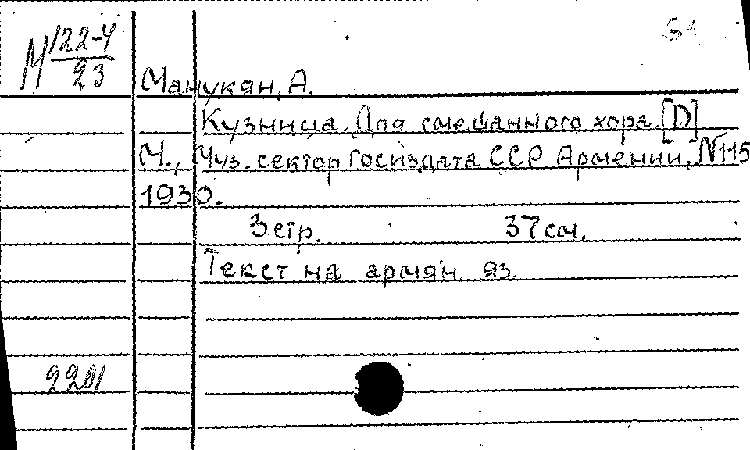 М 122-4
23
Манукян, А.
Кузница. Для смешанного хора. [D]
М., Муз. сектор Госиздата ССР Армении, N115
1930.
3 стр. 37 см.
Текст на армян. яз.
2201